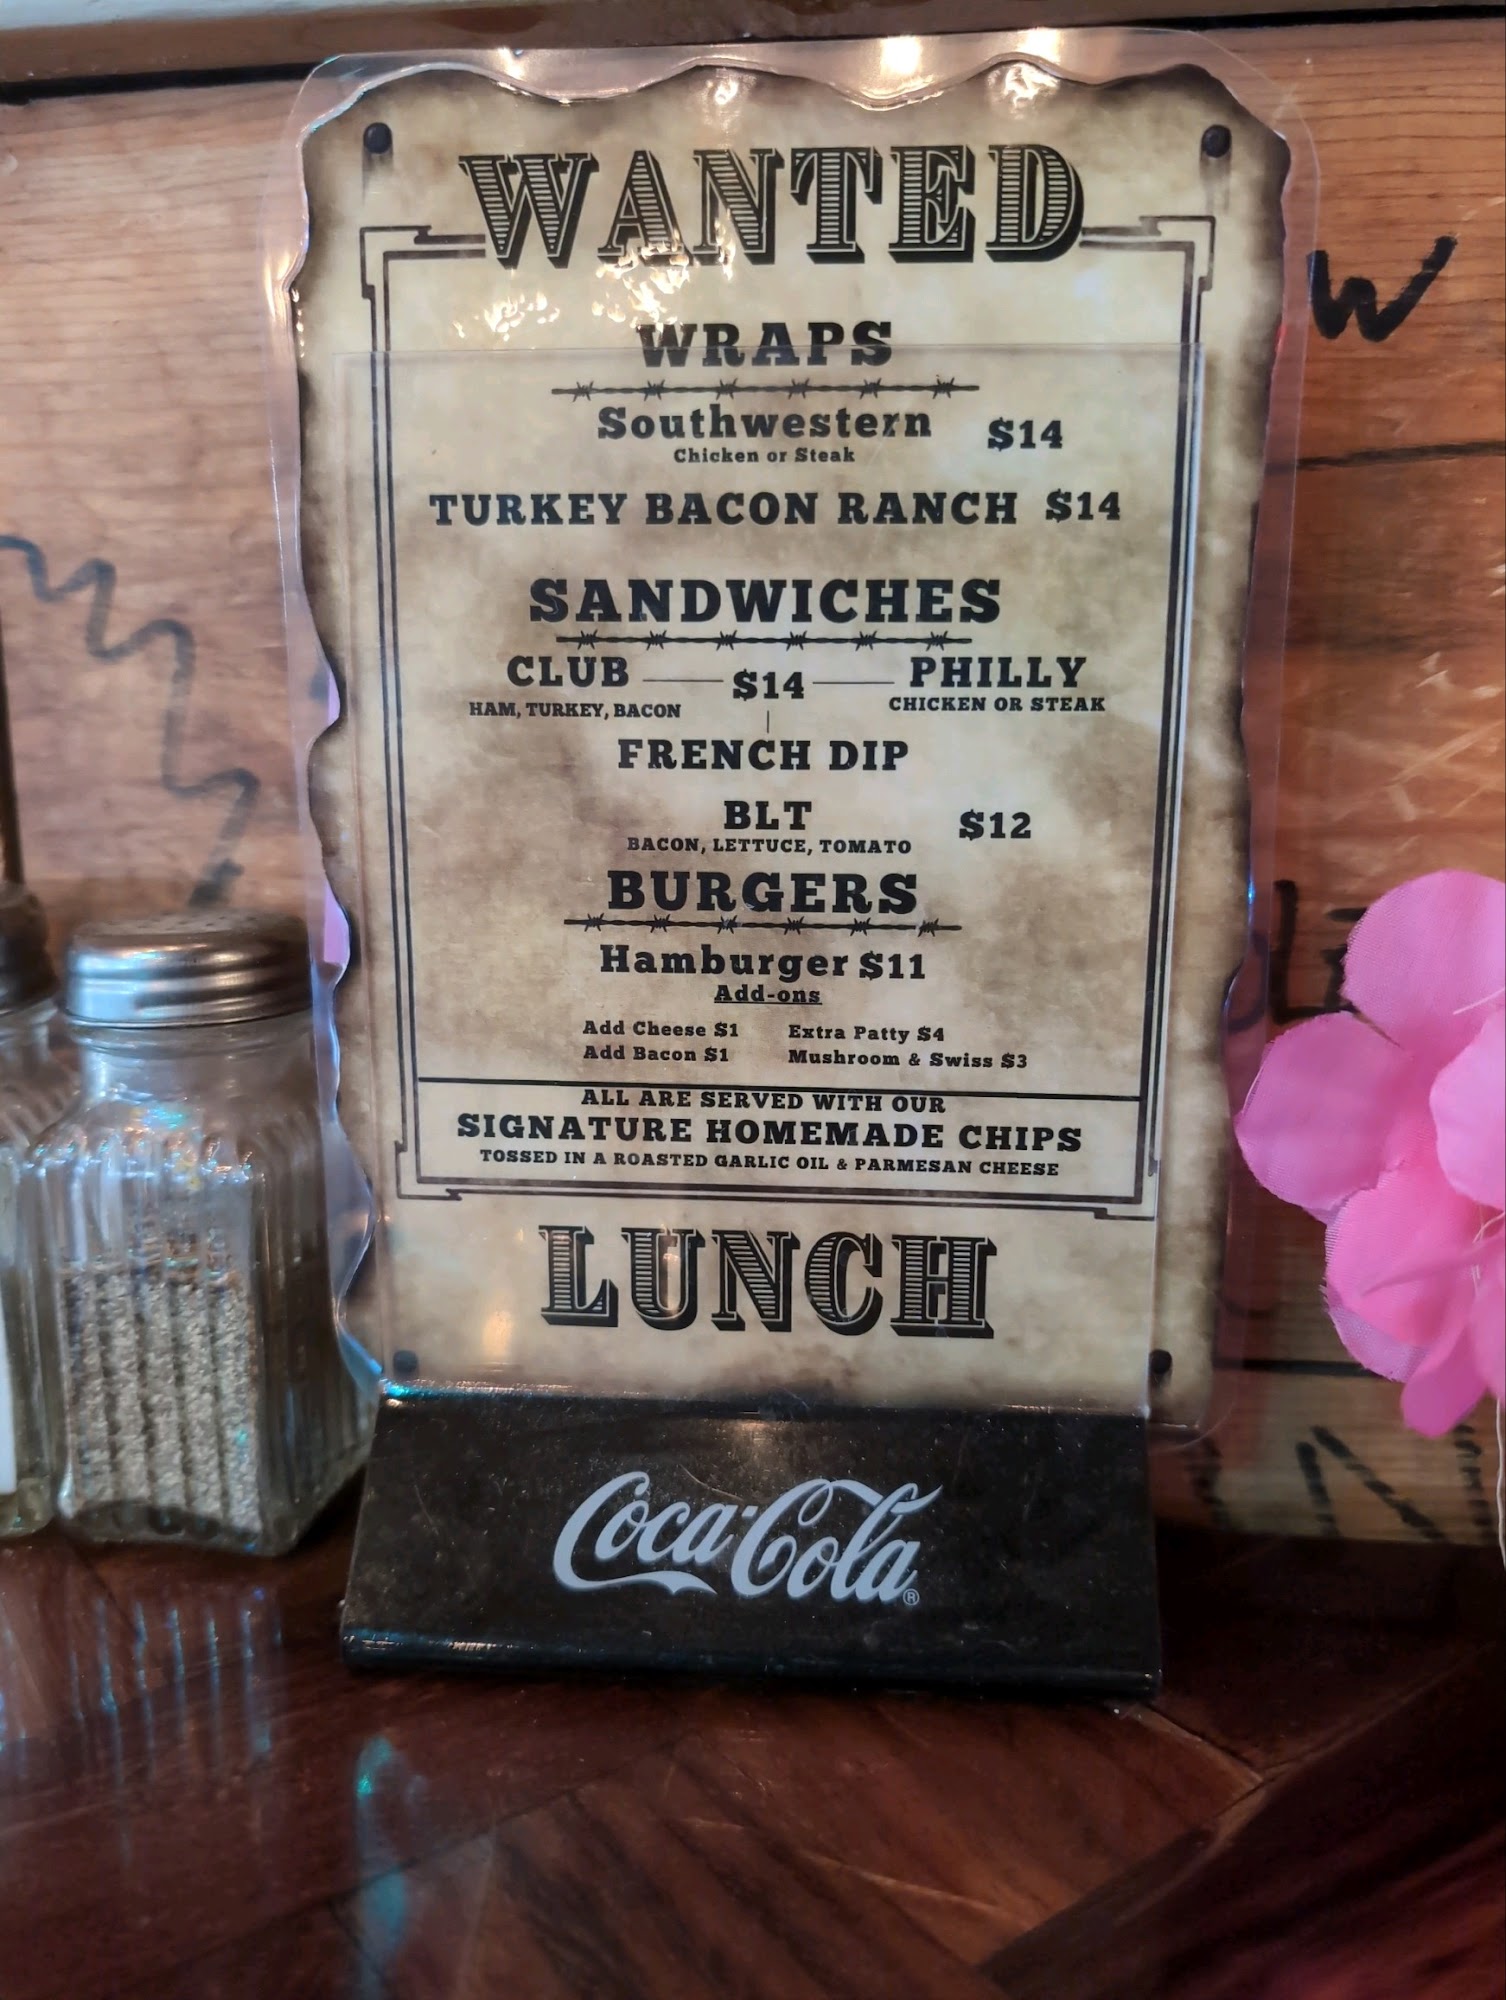 WANTED
WRAPS
Southwestern $14
Chicken or Steak
TURKEY BACON RANCH $14
SANDWICHES
CLUB $14 PHILLY
HAM, TURKEY, BACON CHICKEN OR STEAK
FRENCH DIP
BLT $12
BACON, LETTUCE, TOMATO
BURGERS
Hamburger $11
Add-ons
Add Cheese $1 Extra Patty $4
Add Bacon $1 Mushroom & Swiss $3
ALL ARE SERVED WITH OUR
SIGNATURE HOMEMADE CHIPS
TOSSED IN A ROASTED GARLIC OIL & PARMESAN CHEESE
LUNCH
Coca-Cola®
W